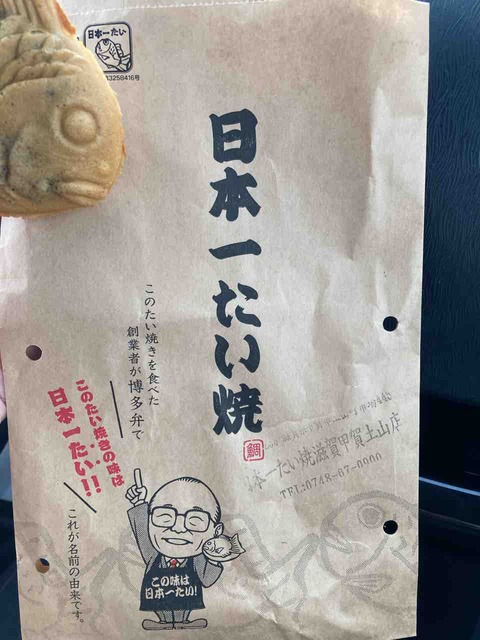 日本一たい
3258416号
日本一たい焼
鯛
このたい焼きを食べた
創業者が博多弁で
このたい焼きの味は
日本一たい!!
これが名前の由来です。
本一たい焼滋賀甲賀土山店
TEL:0748-67-0000
この味は
日本一たい!